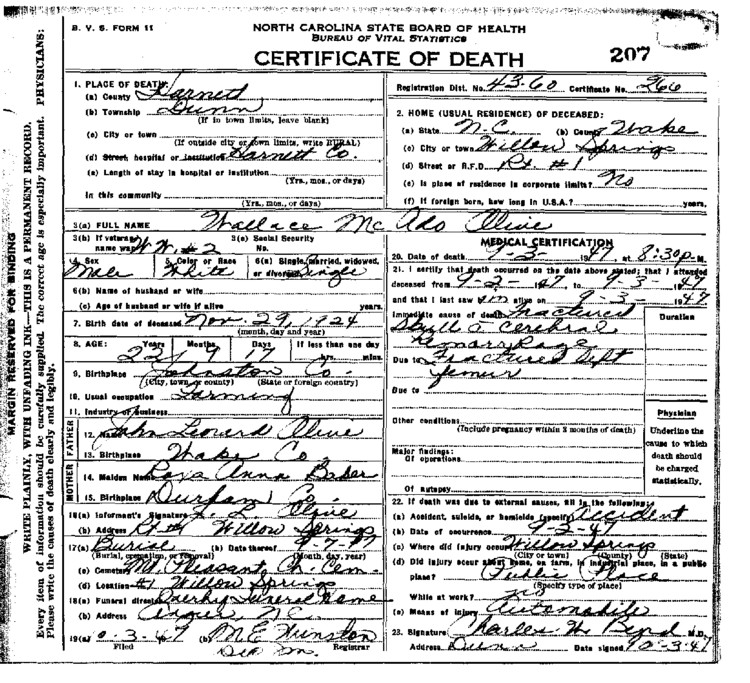 B. V. S. FORM 11
NORTH CAROLINA STATE BOARD OF HEALTH
BUREAU OF VITAL STATISTICS
CERTIFICATE OF DEATH 207
MARGIN RESERVED FOR BINDING
WRITE PLAINLY, WITH UNFADING INK—THIS IS A PERMANENT RECORD.
Every item of information should be carefully supplied. The correct age is especially important. PHYSICIANS:
Please write the causes of death clearly and legibly.
1. PLACE OF DEATH:
(a) County Harnett
(b) Township Dunn
(If in town limits, leave blank)
(c) City or town
(If outside city or town limits, write RURAL)
(d) Street, hospital or institution Harnett Co.
(e) Length of stay in hospital or institution
(Yrs., mos., or days)
In this community
(Yrs., mos., or days)
Registration Dist. No. 43-60 Certificate No. 266
2. HOME (USUAL RESIDENCE) OF DECEASED:
(a) State N.C. (b) County Wake
(c) City or town Willow Springs
(d) Street or R.F.D. Rt. #1
(e) Is place of residence in corporate limits? No
(f) If foreign born, how long in U.S.A.? years.
3(a) FULL NAME Wallace Mc Ado Olive
3(b) If veteran, name war W. W. #2 3(c) Social Security No.
4. Sex Male 5. Color or Race White 6(a) Single, married, widowed, or divorced Single
6(b) Name of husband or wife
(c) Age of husband or wife if alive years.
7. Birth date of deceased Nov. 29, 1924
(month, day and year)
8. AGE: Years Months Days If less than one day
22 9 17 hrs. mins.
9. Birthplace Johnston Co.
(City, town or county) (State or foreign country)
10. Usual occupation Farming
11. Industry or business
FATHER
12. Name John Leonard Olive
13. Birthplace Wake Co.
MOTHER
14. Maiden Name Anna
15. Birthplace Durham Co.
16(a) Informant's Signature J. L. Olive
(b) Address Rt #1 Willow Springs
17(a) Burial (b) Date thereof 9-7-47
(Burial, cremation, or removal) (Month, day, year)
(c) Cemetery Mt. Pleasant Ch. Cem.
(d) Location #1 Willow Springs
18(a) Funeral director Funeral Home
(b) Address Angier, N.C.
19(a) 10-3-47 (b) M.E. Winston
Filed Registrar
MEDICAL CERTIFICATION
20. Date of death 9-3- 1947, at 8:30 P.M.
21. I certify that death occurred on the date above stated; that I attended
deceased from 9-2- 1947, to 9-3- 1947
and that I last saw him alive on 9-3- 1947
Immediate cause of death Fractured
Skull & Cerebral
Hemorrhage
Duration
Due to Fractured Left
Femur
Due to
Other conditions
(Include pregnancy within 3 months of death)
Major findings:
Of operations
Of autopsy
Physician
Underline the
cause to which
death should
be charged
statistically.
22. If death was due to external causes, fill in the following:
(a) Accident, suicide, or homicide (specify) Accident
(b) Date of occurrence 9-3-47
(c) Where did injury occur? Willow Springs
(City or town) (County) (State)
(d) Did injury occur about home, on farm, in industrial place, in a public
place? Public Place
(Specify type of place)
While at work? no
(e) Means of injury Automobile
23. Signature Charles W. Byrd M.D.
Address Dunn Date signed 10-3-47